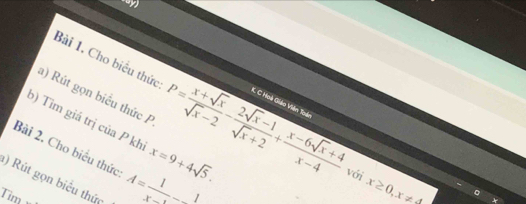 K. C Hoá Giáo Viên Toán
Bài 1. Cho biểu thức: P = \frac{x+\sqrt{x}}{\sqrt{x}-2} - \frac{2\sqrt{x}-1}{\sqrt{x}+2} + \frac{x-6\sqrt{x}+4}{x-4} với x ≥ 0, x ≠ 4
a) Rút gọn biểu thức P.
b) Tìm giá trị của P khi x = 9 + 4√5.
Bài 2. Cho biểu thức: A =
a) Rút gọn biểu thức
Tìm